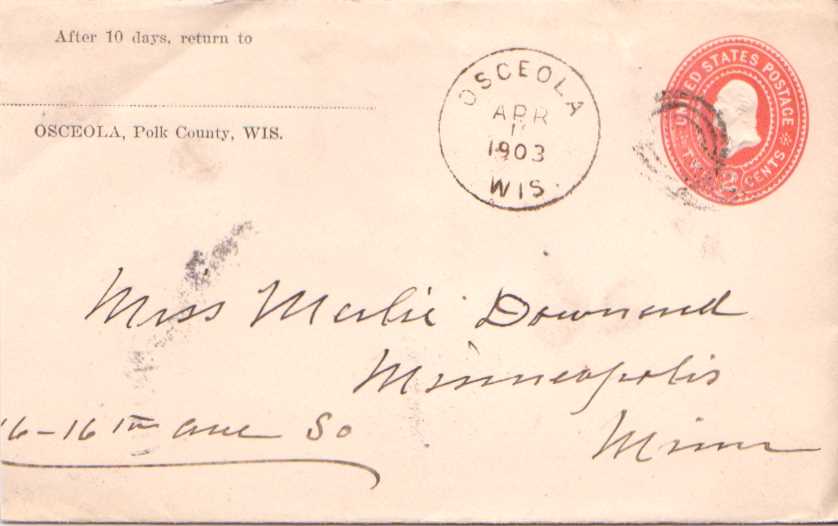 After 10 days, return to
OSCEOLA, Polk County, WIS.
OSCEOLA
APR
1903
WIS.
UNITED STATES POSTAGE
TWO CENTS
2
Miss
Minneapolis
Minn
16-16th ave So